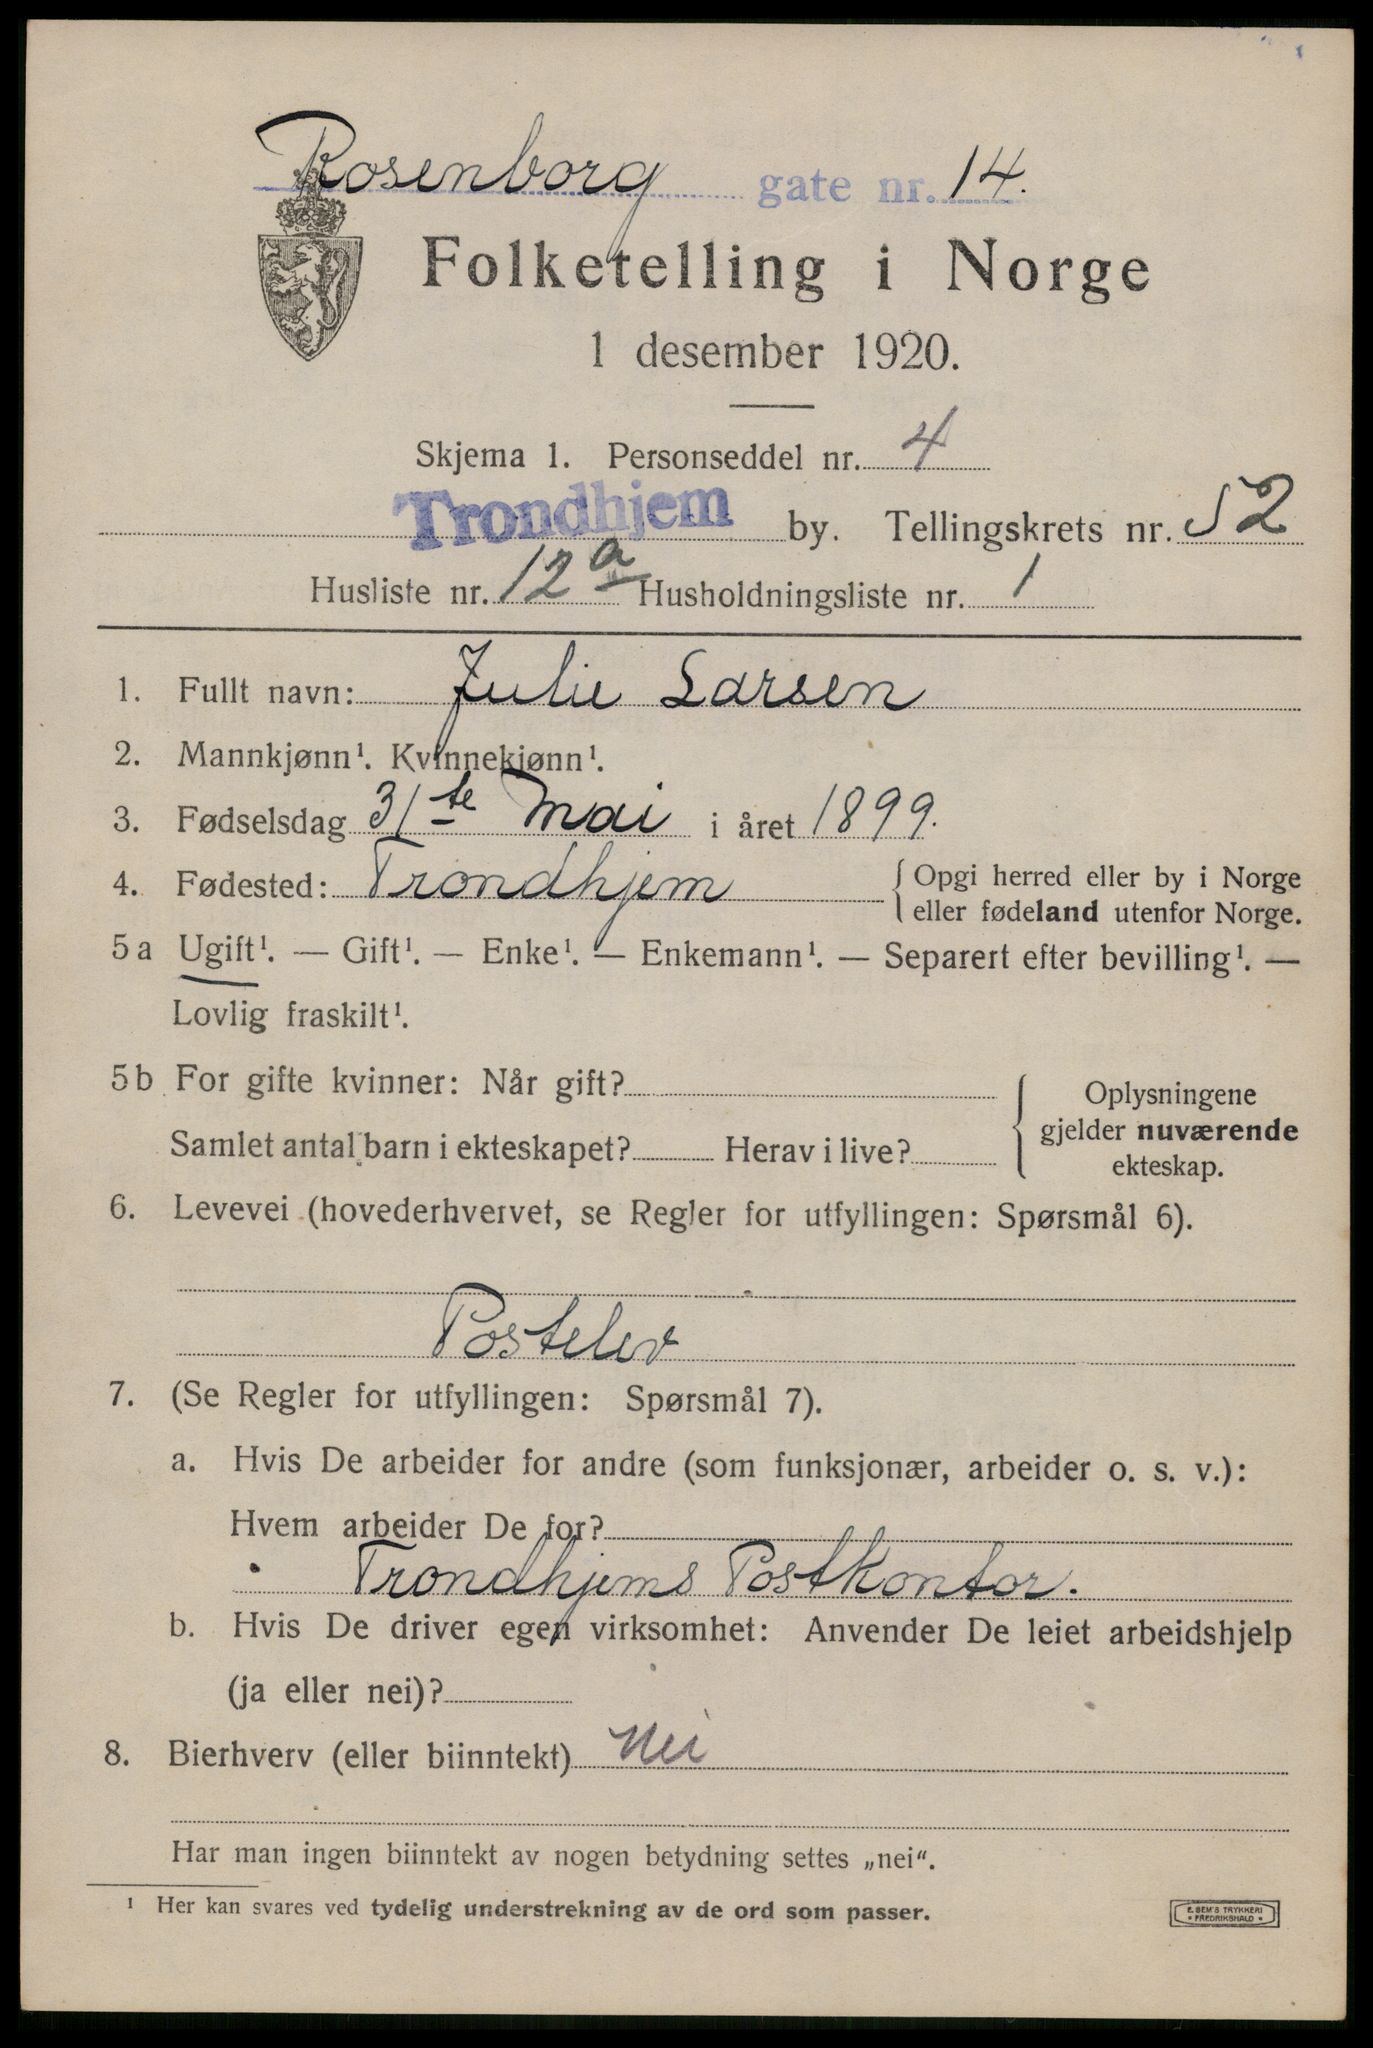 Rosenborg gate nr. 14.
Folketelling i Norge
1 desember 1920.
Skjema 1. Personseddel nr. 4
Trondhjem by. Tellingskrets nr. 52
Husliste nr. 12a Husholdningsliste nr. 1
1. Fullt navn: Julie Larsen
2. Mannkjønn¹. Kvinnekjønn¹.
3. Fødselsdag 31te Mai i året 1899.
4. Fødested: Trondhjem { Opgi herred eller by i Norge
eller fødeland utenfor Norge.
5a Ugift¹. — Gift¹. — Enke¹. — Enkemann¹. — Separert efter bevilling¹. —
Lovlig fraskilt¹.
5b For gifte kvinner: Når gift?
Samlet antal barn i ekteskapet? Herav i live?
{ Oplysningene
gjelder nuværende
ekteskap.
6. Levevei (hovederhvervet, se Regler for utfyllingen: Spørsmål 6).
Postelev
7. (Se Regler for utfyllingen: Spørsmål 7).
a. Hvis De arbeider for andre (som funksjonær, arbeider o. s. v.):
Hvem arbeider De for?
Trondhjems Postkontor.
b. Hvis De driver egen virksomhet: Anvender De leiet arbeidshjelp
(ja eller nei)?
8. Bierhverv (eller biinntekt) Nei
Har man ingen biinntekt av nogen betydning settes „nei“.
¹ Her kan svares ved tydelig understrekning av de ord som passer.
E. SEM'S TRYKKERI
• FREDRIKSHALD •